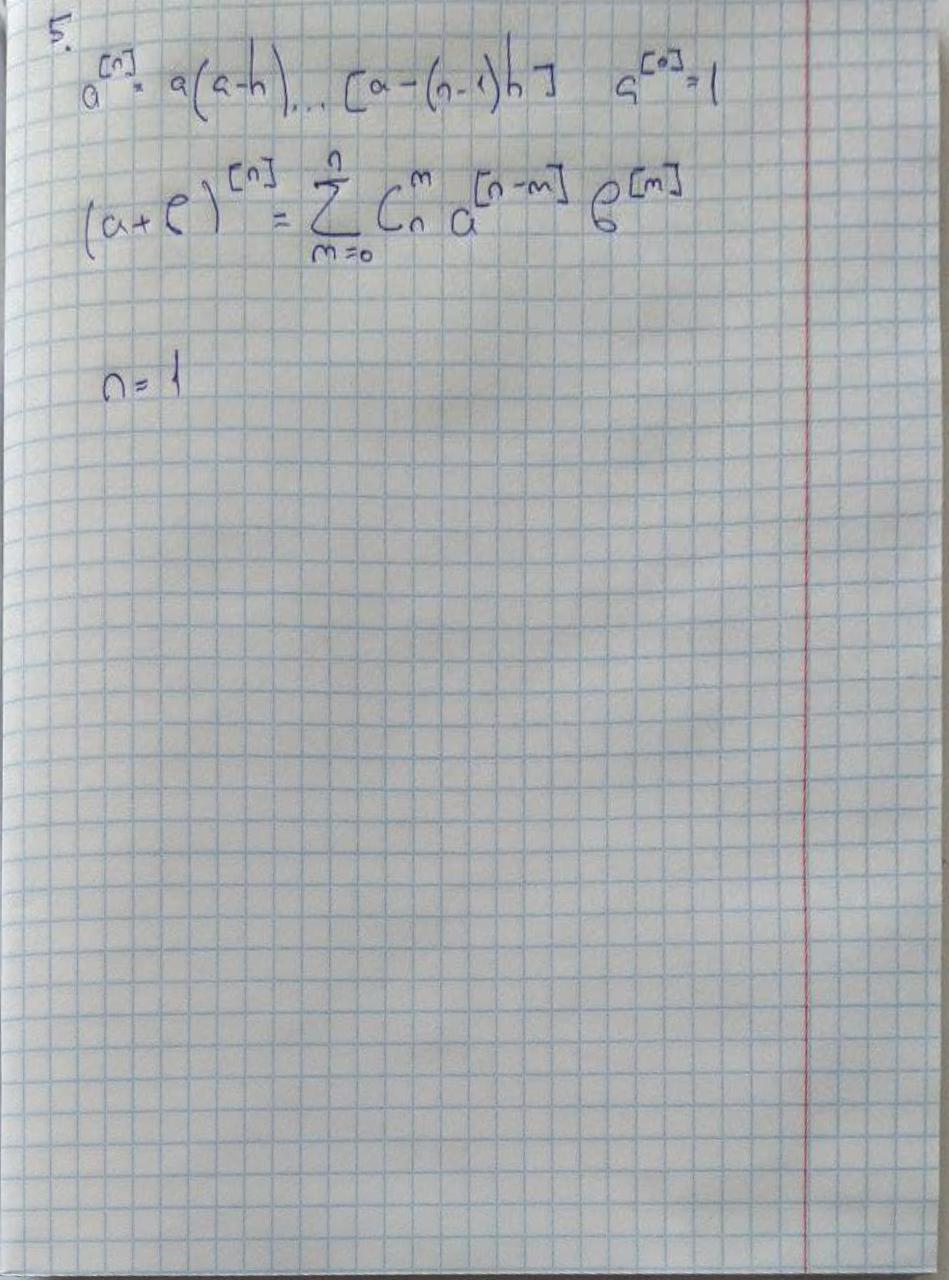 5.
a^[n] = a(a-h)... [a-(n-1)h] a^[0]=1
(a+b)^[n] = ∑_{m=0}^{n} C_n^m a^[n-m] b^[m]
n=1